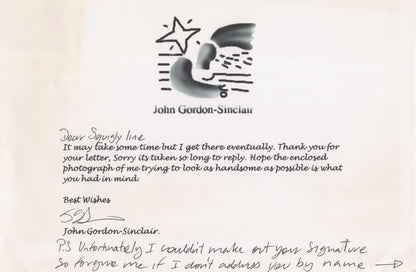 John Gordon-Sinclair
Dear Squigly line
It may take some time but I get there eventually. Thank you for
your letter, Sorry its taken so long to reply. Hope the enclosed
photograph of me trying to look as handsome as possible is what
you had in mind.
Best Wishes
John Gordon-Sinclair.
P.S Unfortunately I couldn't make out your signature
So forgive me if I don't address you by name →